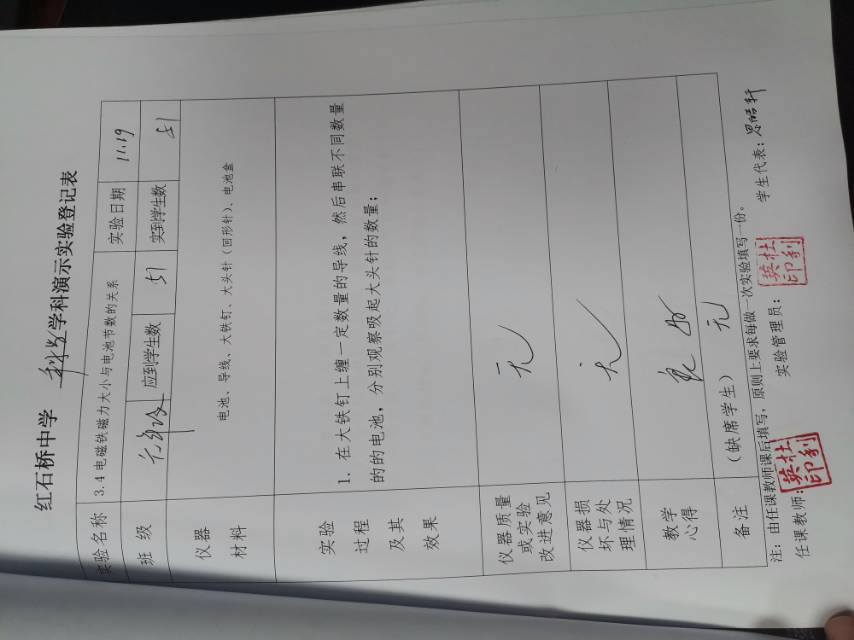 红石桥中学 科学学科演示实验登记表
实验名称 3.4电磁铁磁力大小与电池节数的关系 实验日期 11.19
班 级 应到学生数 51 实到学生数 51
仪器
材料
电池、导线、大铁钉、大头针（回形针）、电池盒
实验
过程
及其
效果
1. 在大铁钉上缠一定数量的导线，然后串联不同数量
的的电池，分别观察吸起大头针的数量；
仪器质量
或实验
改进意见
无
仪器损
坏与处
理情况
无
教学
心得
良好
备注 （缺席学生） 无
注：由任课教师课后填写，原则上要求每做一次实验填写一份。
任课教师： 实验管理员： 学生代表：
英杜
印利
英杜
印利